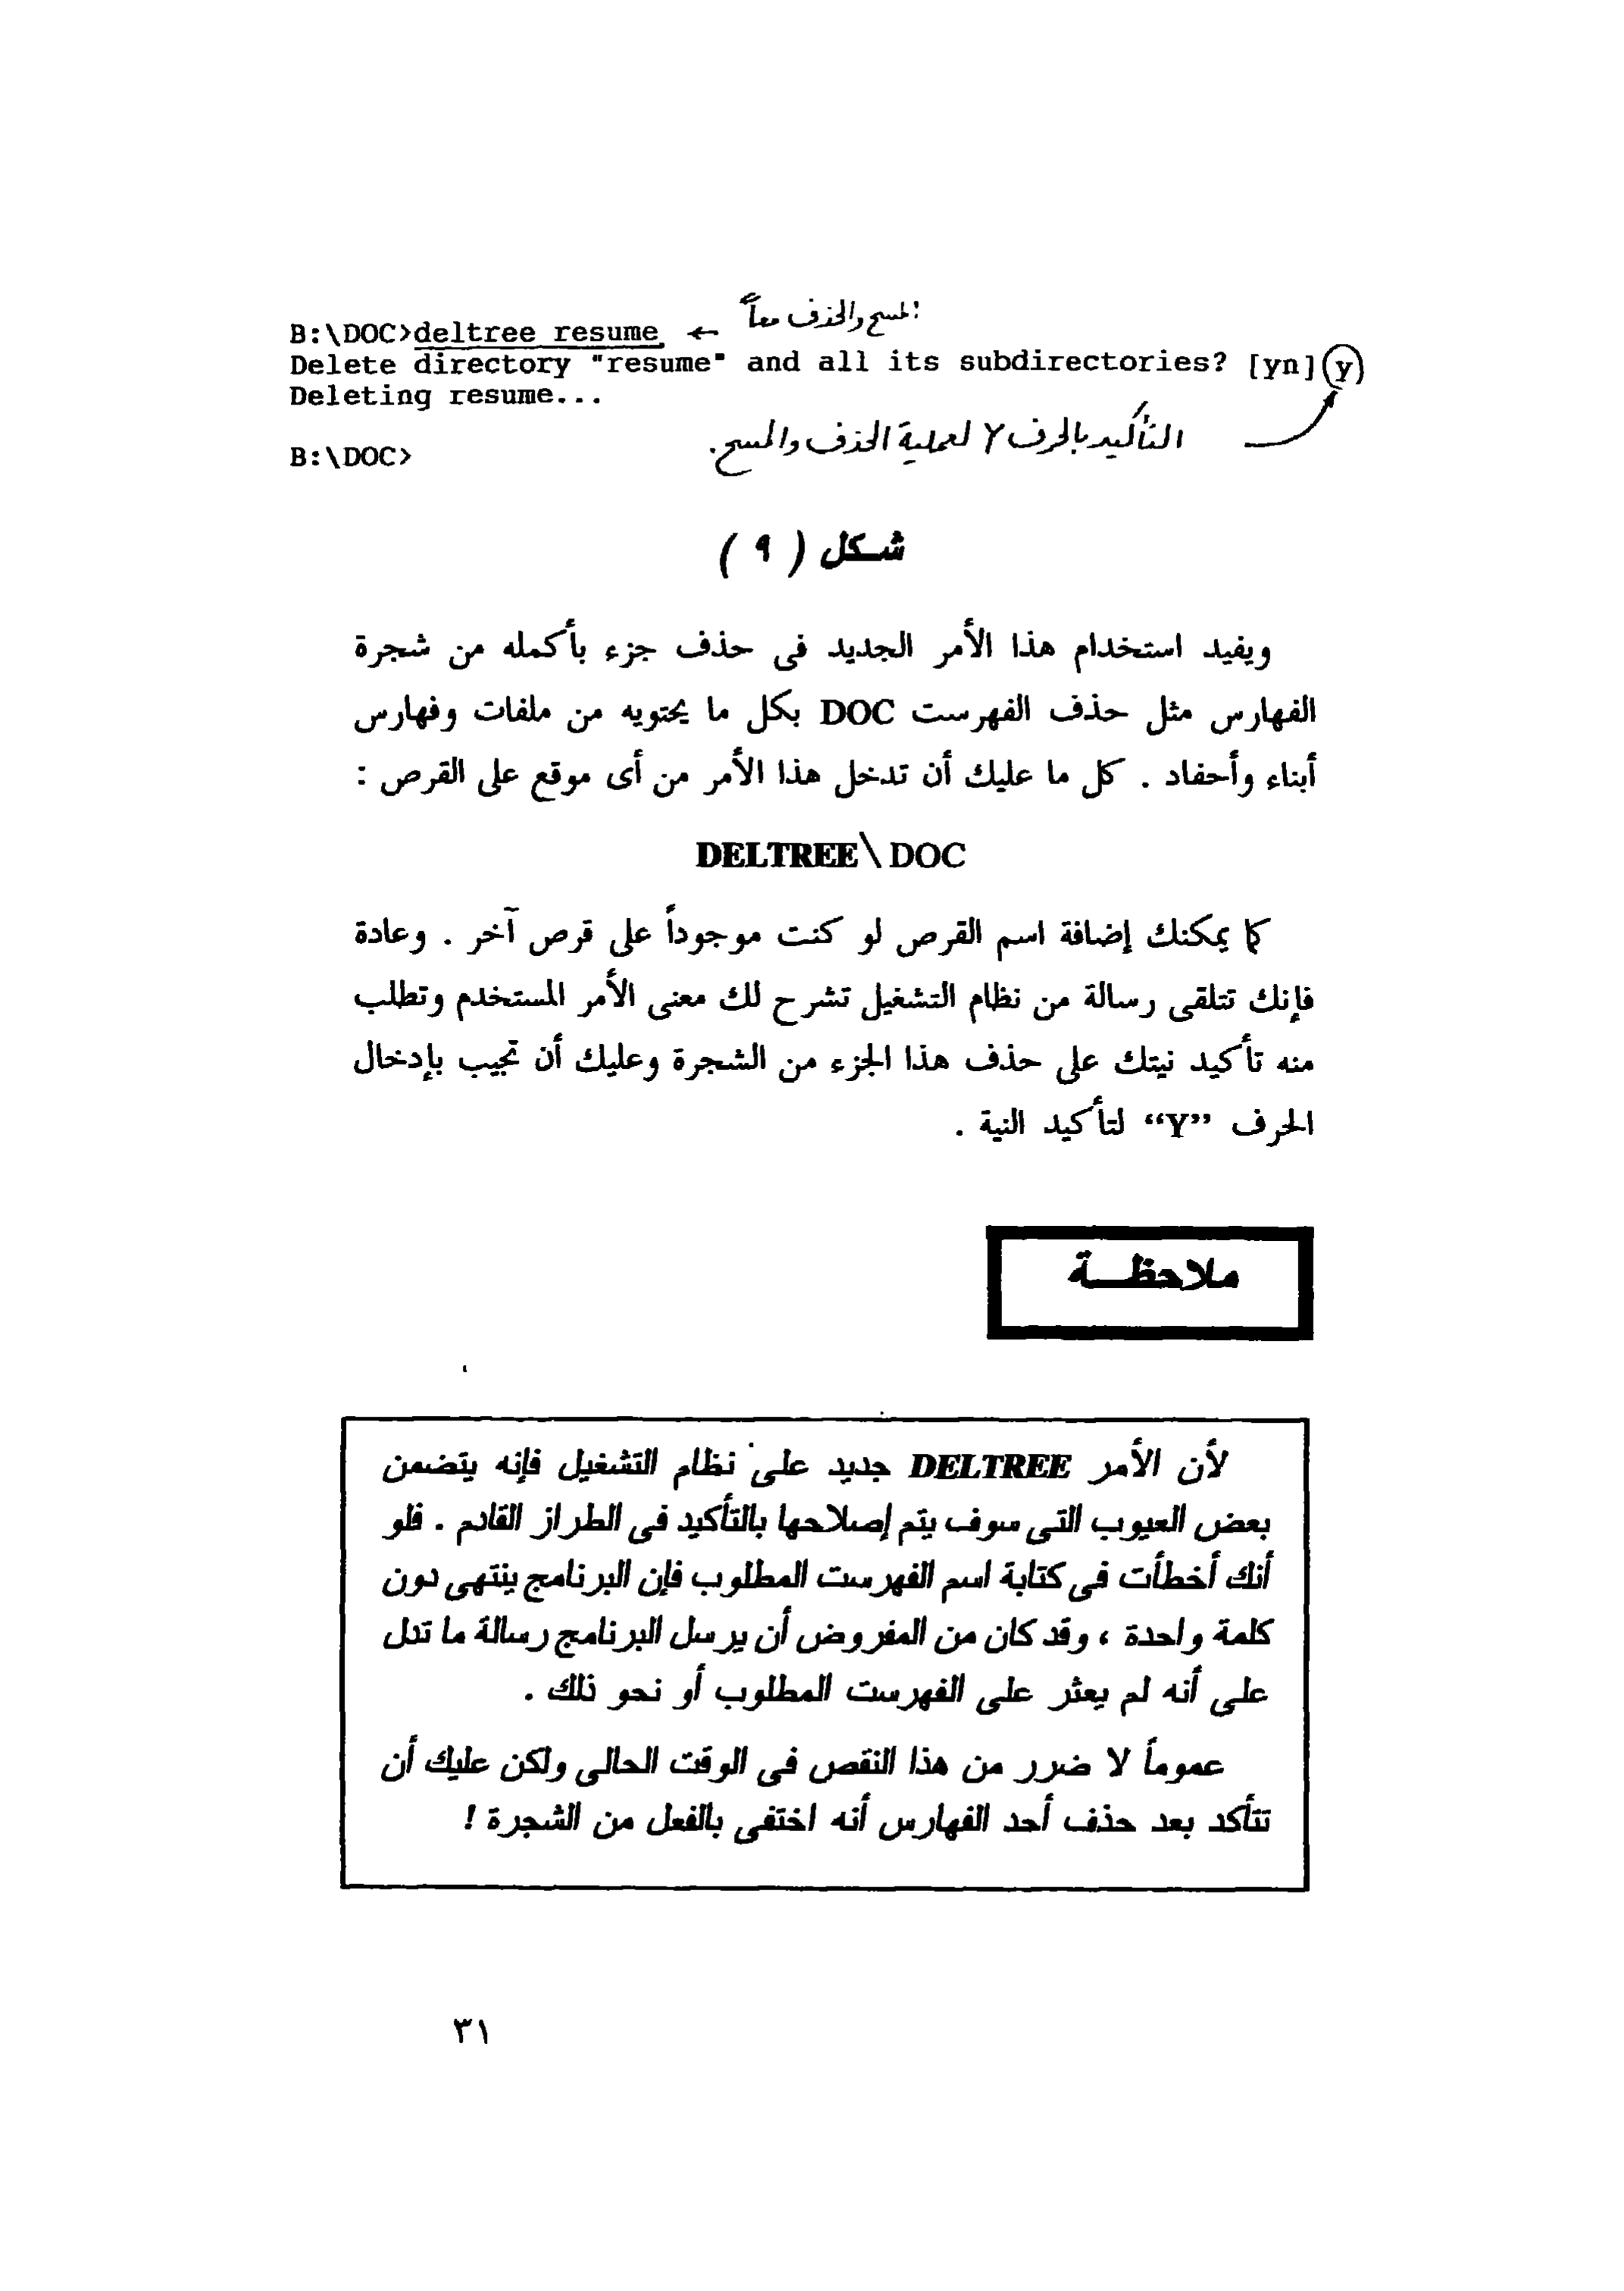 B:\DOC>deltree resume ← المسح والحذف معاً
Delete directory "resume" and all its subdirectories? [yn] y
Deleting resume...
التأكيد بالحرف Y لعملية الحذف والمسح.
B:\DOC>
شكل ( ٩ )
ويفيد استخدام هذا الأمر الجديد فى حذف جزء بأكمله من شجرة
الفهارس مثل حذف الفهرست DOC بكل ما يحتويه من ملفات وفهارس
أبناء وأحفاد . كل ما عليك أن تدخل هذا الأمر من أى موقع على القرص :
DELTREE\DOC
كما يمكنك إضافة اسم القرص لو كنت موجوداً على قرص آخر . وعادة
فإنك تتلقى رسالة من نظام التشغيل تشرح لك معنى الأمر المستخدم وتطلب
منه تأكيد نيتك على حذف هذا الجزء من الشجرة وعليك أن تجيب بإدخال
الحرف “Y” لتأكيد النية .
ملاحظة
لأن الأمر DELTREE جديد على نظام التشغيل فإنه يتضمن
بعض العيوب التى سوف يتم إصلاحها بالتأكيد فى الطراز القادم . فلو
أنك أخطأت فى كتابة اسم الفهرست المطلوب فإن البرنامج ينتهى دون
كلمة واحدة ، وقد كان من المفروض أن يرسل البرنامج رسالة ما تدل
على أنه لم يعثر على الفهرست المطلوب أو نحو ذلك .
عموماً لا ضرر من هذا النقص فى الوقت الحالى ولكن عليك أن
تتأكد بعد حذف أحد الفهارس أنه اختفى بالفعل من الشجرة !
٣١